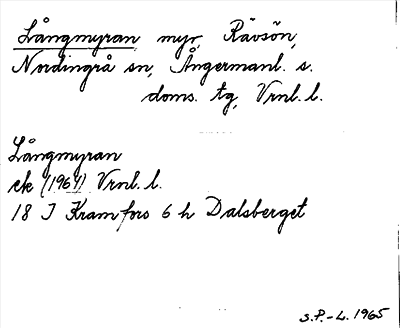 Långmyran myr, Rävsön,
Nordingrå sn, Ångermanl. s.
doms. tg, Vrnl. l.
Långmyran
ek (1961) Vrnl. l.
18 J Kramfors 6 h Dalsberget
S.P.-L. 1965